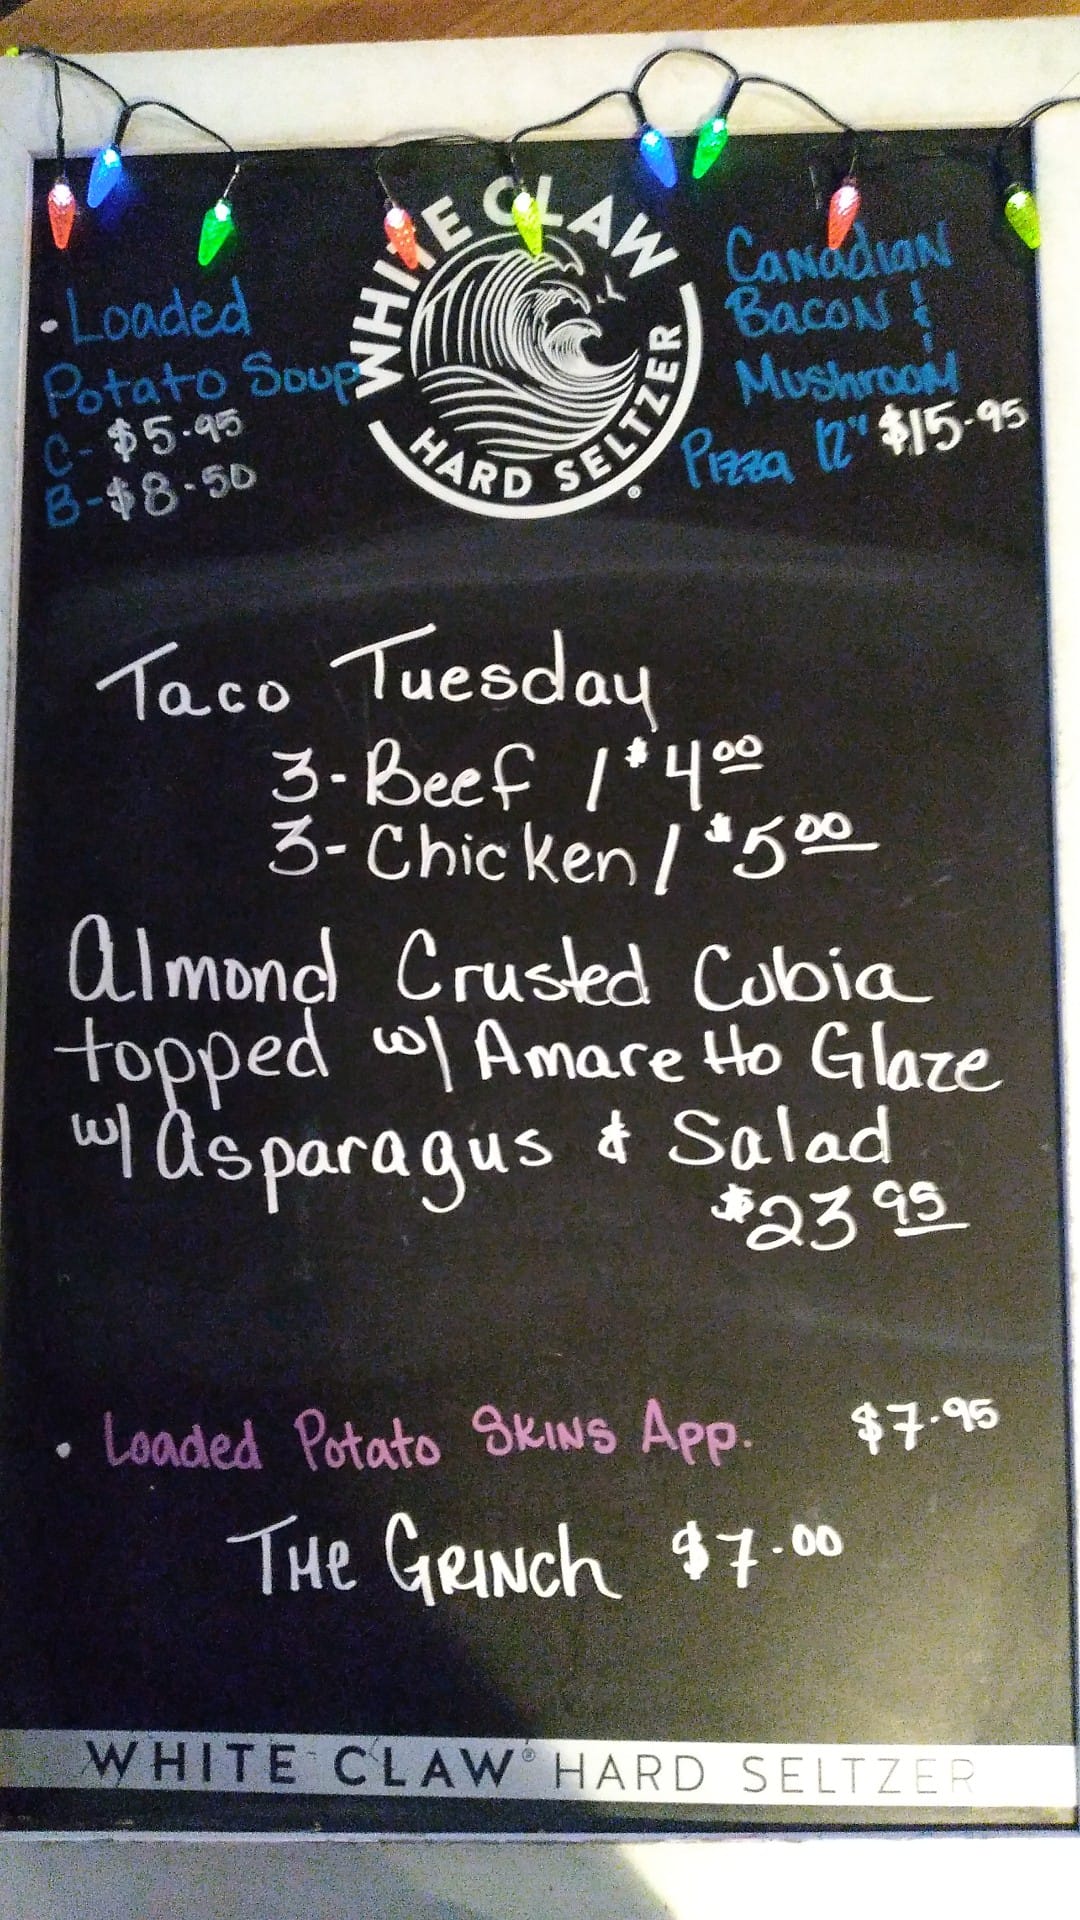 WHITE CLAW
HARD SELTZER
®
• Loaded
Potato Soup
C- $5.95
B- $8.50
Canadian
Bacon &
Mushroom
Pizza 12" $15.95
Taco Tuesday
3- Beef / $4.00
3- Chicken / $5.00
Almond Crusted Cobia
topped w/ Amaretto Glaze
w/ Asparagus & Salad
$23.95
• Loaded Potato Skins App. $7.95
The Grinch $7.00
WHITE CLAW® HARD SELTZER